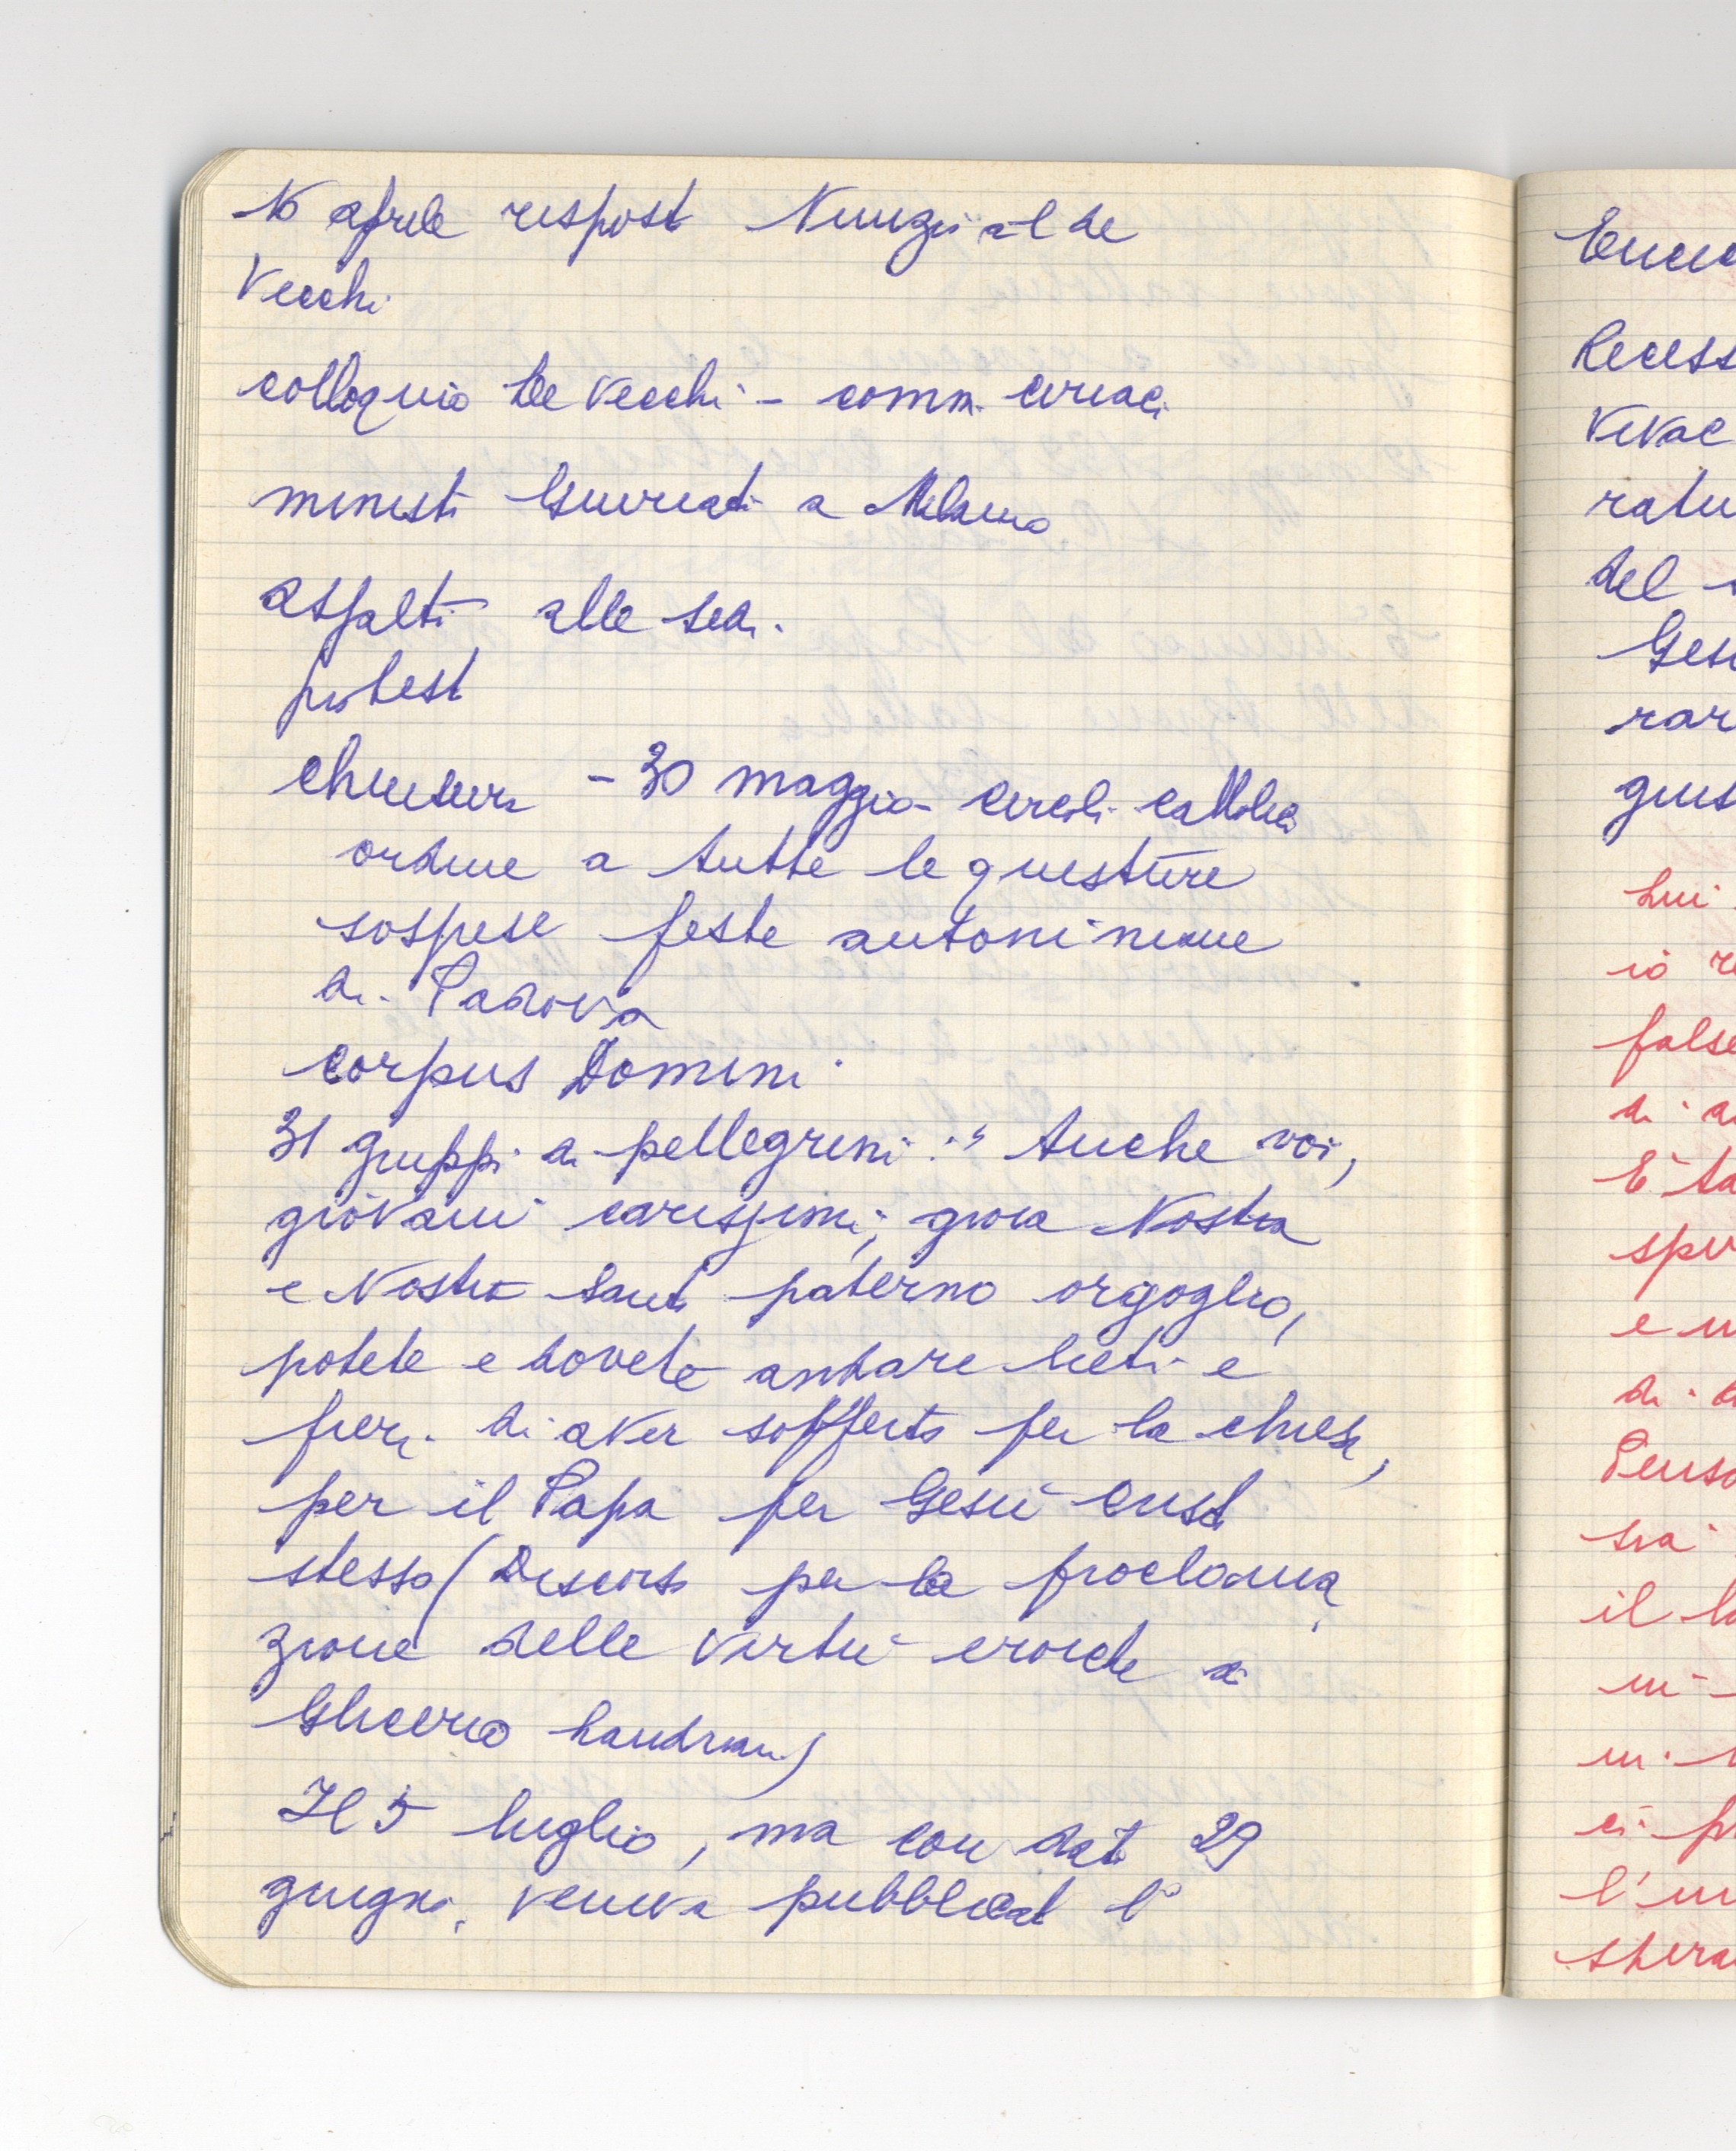 16 aprile rispost Nunzi al de
Vecchi
colloquio De Vecchi - comm. Ciriaci
ministi Giuriati a Milano
assalti alle sedi.
protest
chiusura - 30 maggio - circoli cattolici
ordine a tutte le questure
sospese feste antoniniane
di Padova
Corpus Domini
31 gruppi di pellegrini : " Anche voi,
giovani carissimi, gioia Nostra
e Nostro sant paterno orgoglio,
potete e dovete andare lieti e
fieri di aver sofferto per la chiesa,
per il Papa per Gesù Crist
stesso (Discorso per la proclama
zione delle virtù eroiche di
Glicerio Landriani)
Il 5 luglio, ma con dat 29
giugno, veniva pubblicat l'
del
false
E' ta
e
di
il
l'